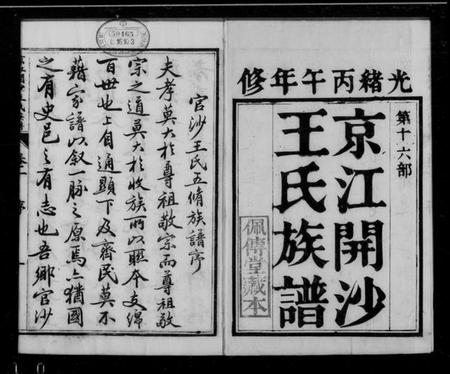 光緒丙午年修
第十六部
京江開沙
王氏族譜
佩傳堂藏本
官沙王氏五脩族譜序
夫孝莫大於尊祖敬宗而尊祖敬
宗之道莫大於收族所以聯本支綿
百世也上自通顯下及齊民莫不
藉家譜以叙一脈之原焉亦猶國
之有史邑之有志也吾鄉官沙